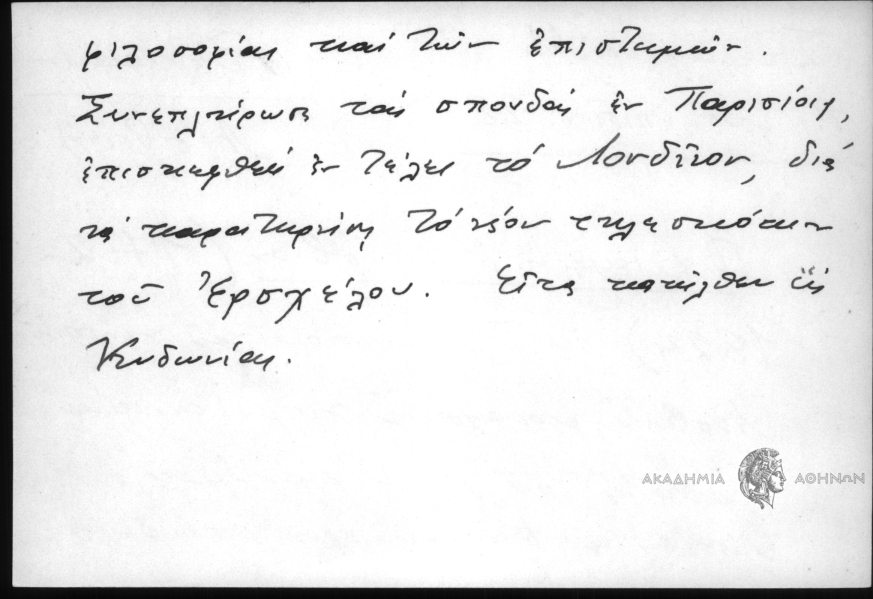 φιλοσοφίας καί τῶν ἐπιστημῶν.
Συνεπλήρωσε τάς σπουδάς ἐν Παρισίοις,
ἐπισκεφθείς ἐν τέλει τό Λονδῖνον, διά
νά παρατηρήσῃ τό νέον τηλεσκόπιον
τοῦ Ἑρσχέλου. Εἶτα κατῆλθεν εἰς
Κυδωνίας.
ΑΚΑΔΗΜΙΑ ΑΘΗΝΩΝ